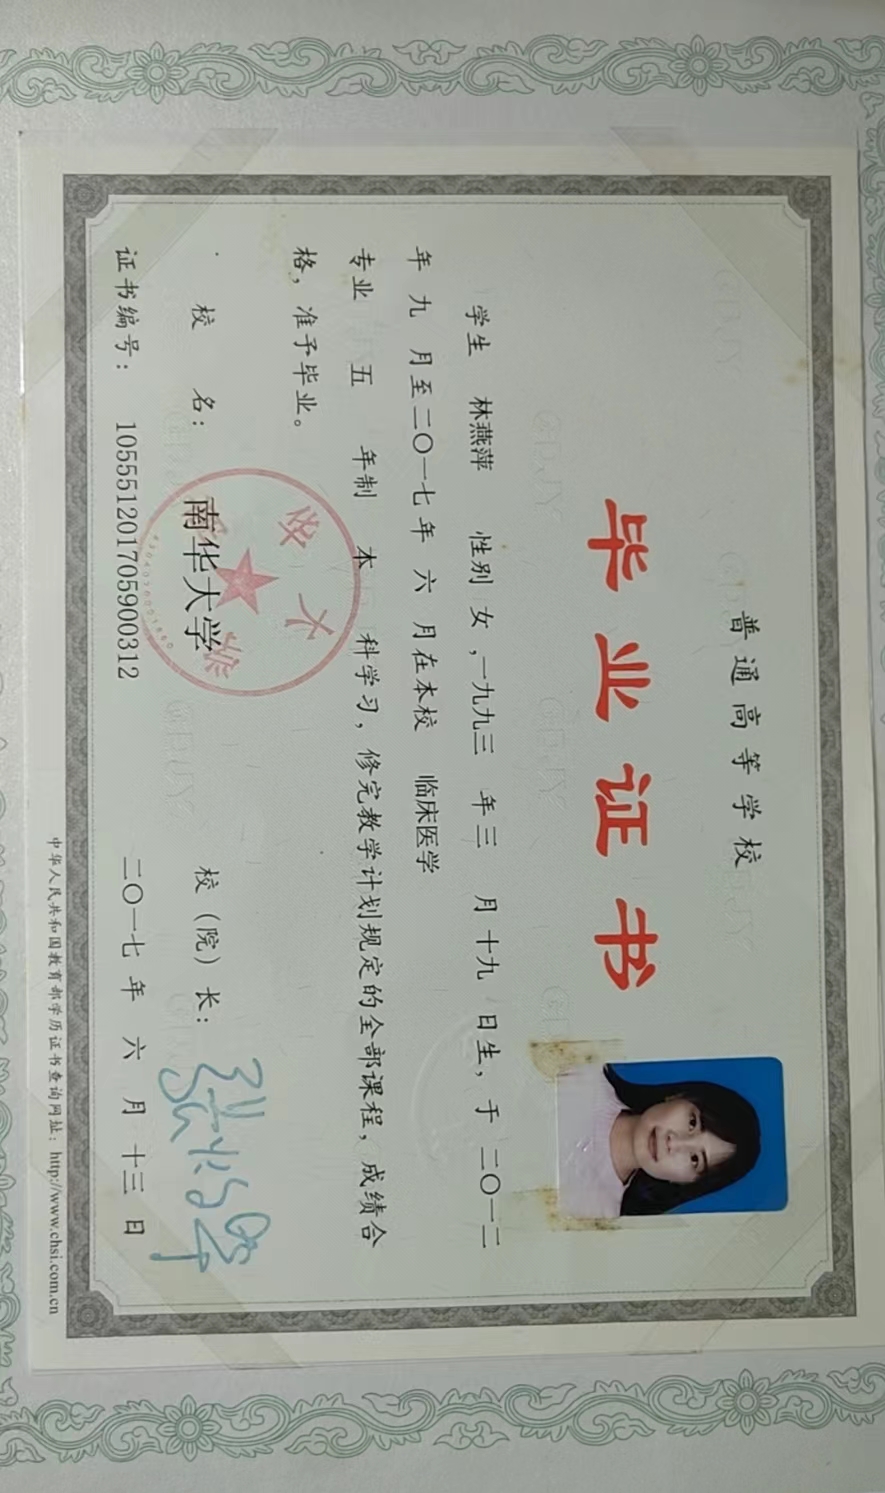 普通高等学校
毕业证书
学生 林燕萍 性别 女 ,一九九三 年 三 月 十九 日生, 于 二〇一二
年 九 月至 二〇一七 年 六 月在本校 临床医学
专业 五 年制 本 科学习, 修完教学计划规定的全部课程, 成绩合
格, 准予毕业。
校 名: 南华大学 校(院)长:
证书编号: 105551201705900312 二〇一七 年 六 月 十三 日
中华人民共和国教育部学历证书查询网址: http://www.chsi.com.cn